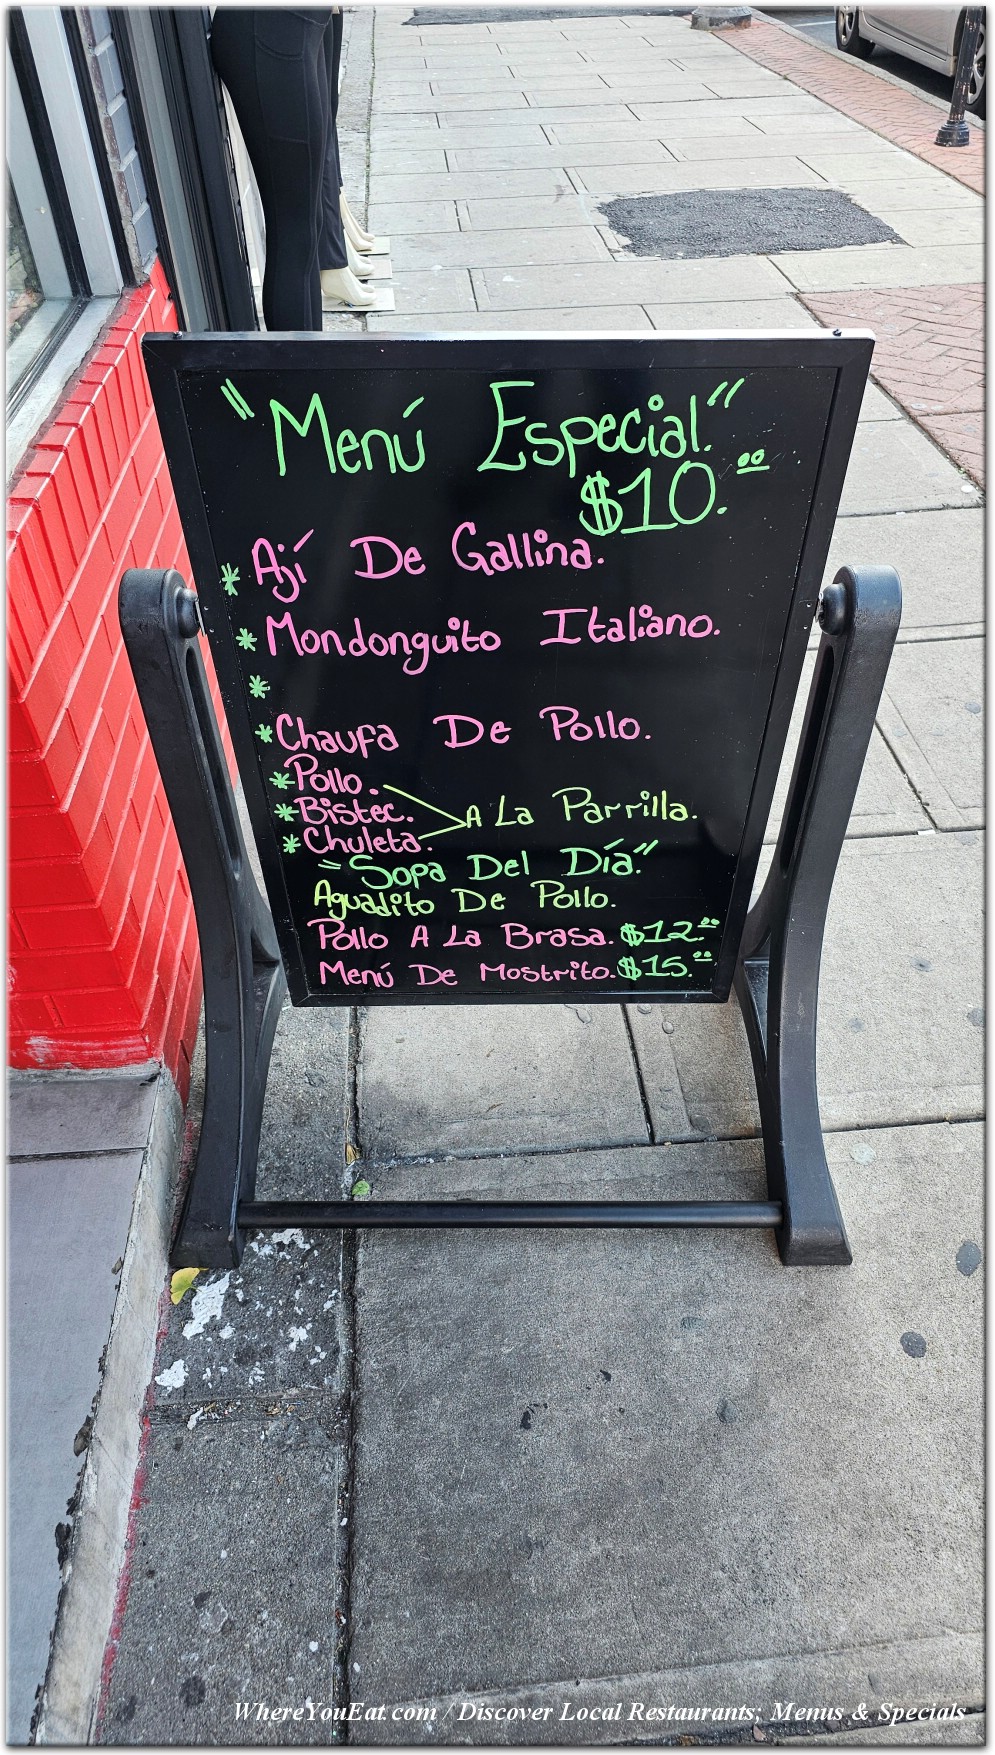 "Menú Especial."
$10.00
* Ají De Gallina.
* Mondonguito Italiano.
*
* Chaufa De Pollo.
* Pollo.
* Bistec. A La Parrilla.
* Chuleta.
"Sopa Del Día."
Aguadito De Pollo.
Pollo A La Brasa. $12.00
Menú De Mostrito. $15.00
WhereYouEat.com / Discover Local Restaurants; Menus & Specials